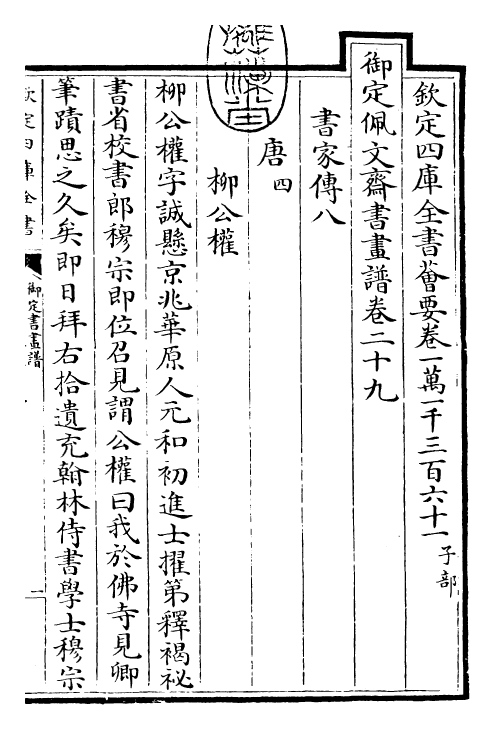 欽定四庫全書薈要卷一萬一千三百六十一 子部
御定佩文齋書畫譜卷二十九
書家傳八
唐四
柳公權
柳公權字誠懸京兆華原人元和初進士擢第釋褐祕
書省校書郎穆宗即位召見謂公權曰我於佛寺見卿
筆蹟思之久矣即日拜右拾遺充翰林侍書學士穆宗
欽定四庫全書
御定書畫譜